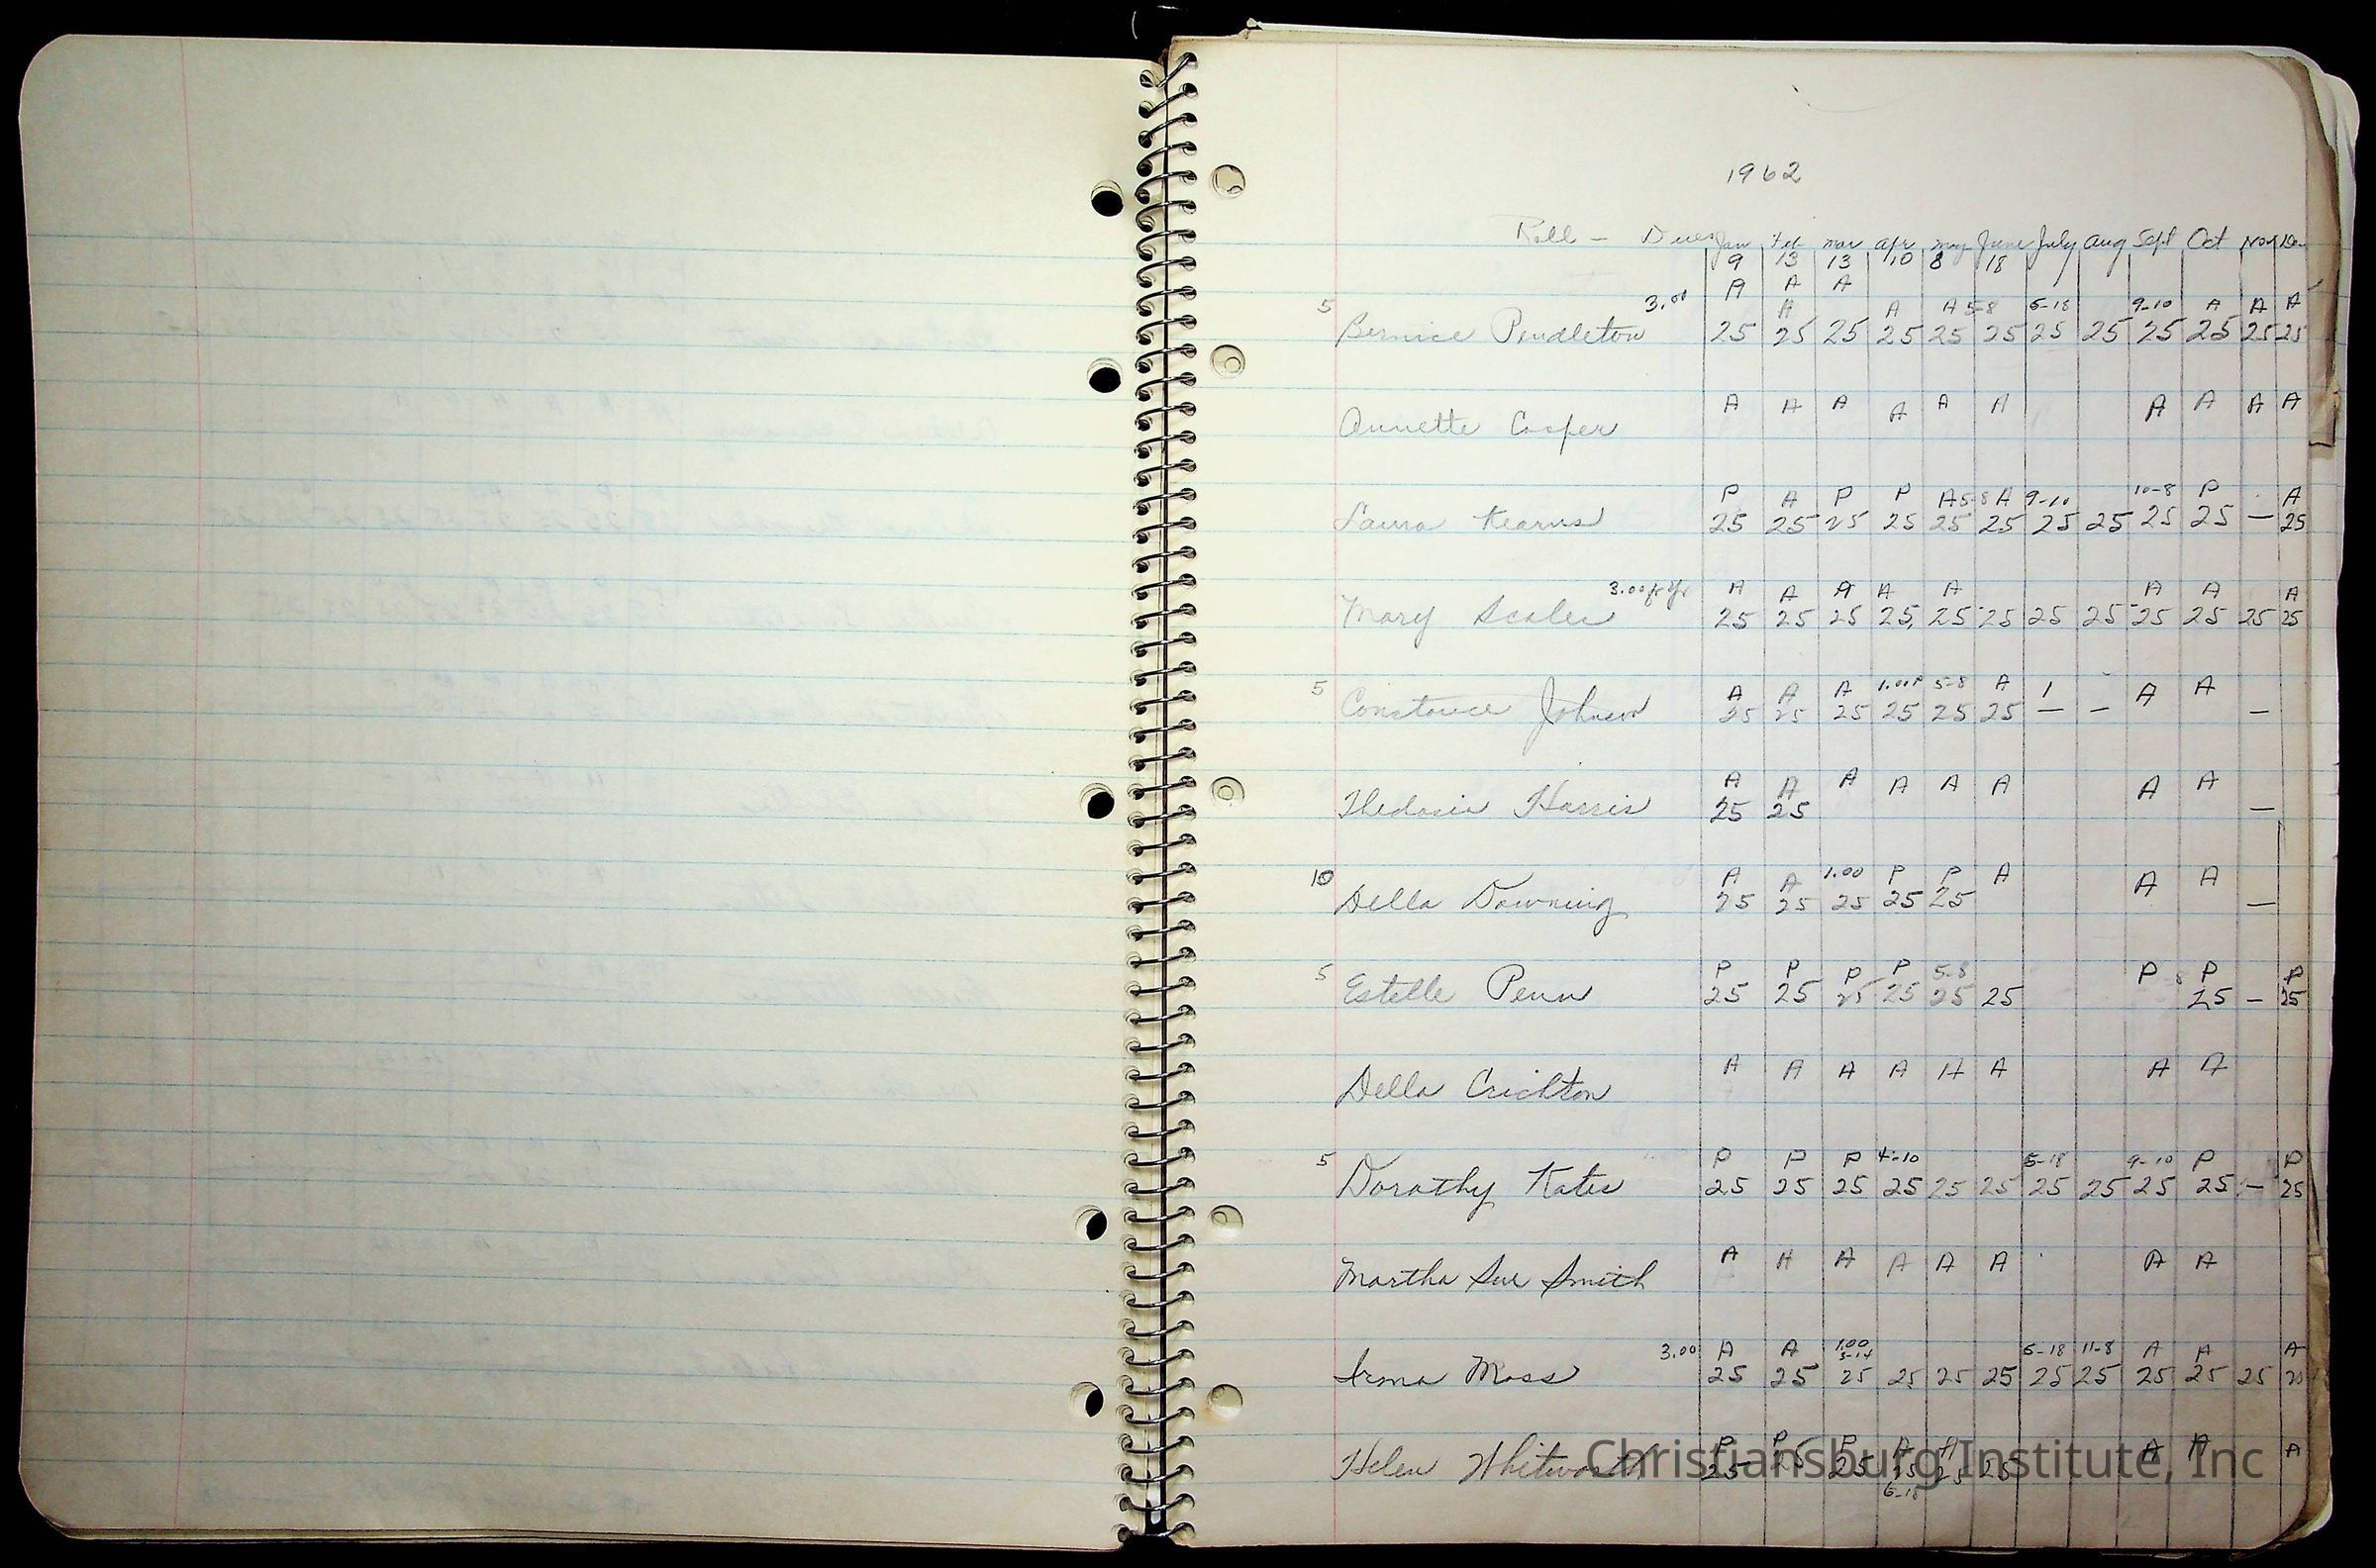 1962
Roll - Dues Jan Feb Mar Apr May June July Aug Sept Oct Nov Dec
9 13 13 4/10 8 18
A A A
5 3.00 A A A 5-8 6-18 9-10 A A A
Bernice Pendleton 25 25 25 25 25 25 25 25 25 25 25 25
A A A A A A A A A A
Annette Casper
P A P P A 5-8 A 9-10 10-8 P A
Laura Kearns 25 25 25 25 25 25 25 25 25 25 — 25
3.00 A A A A A A A A
Mary Scales 25 25 25 25 25 25 25 25 25 25 25 25
5 A A A 1.00 P 5-8 A A A
Constance Johnson 25 25 25 25 25 25 — — —
A A A A A A A A
Thedosia Harris 25 25 —
10 A A 1.00 P P A A A
Della Downing 25 25 25 25 25 —
5 P P P P 5-8 P P P
Estelle Penn 25 25 25 25 25 25 25 — 25
A A A A A A A A
Della Crichton
5 P P P 4-10 6-18 9-10 P P
Dorothy Kates 25 25 25 25 25 25 25 25 25 25 — 25
A A A A A A A A
Martha Sue Smith
3.00 A A 1.00 6-18 11-8 A A A
3-14
Irma Moss 25 25 25 25 25 25 25 25 25 25 25
P P P A A A A A
Helen Whitworth 25 25 25 25 25 25
6-18
Christiansburg Institute, Inc